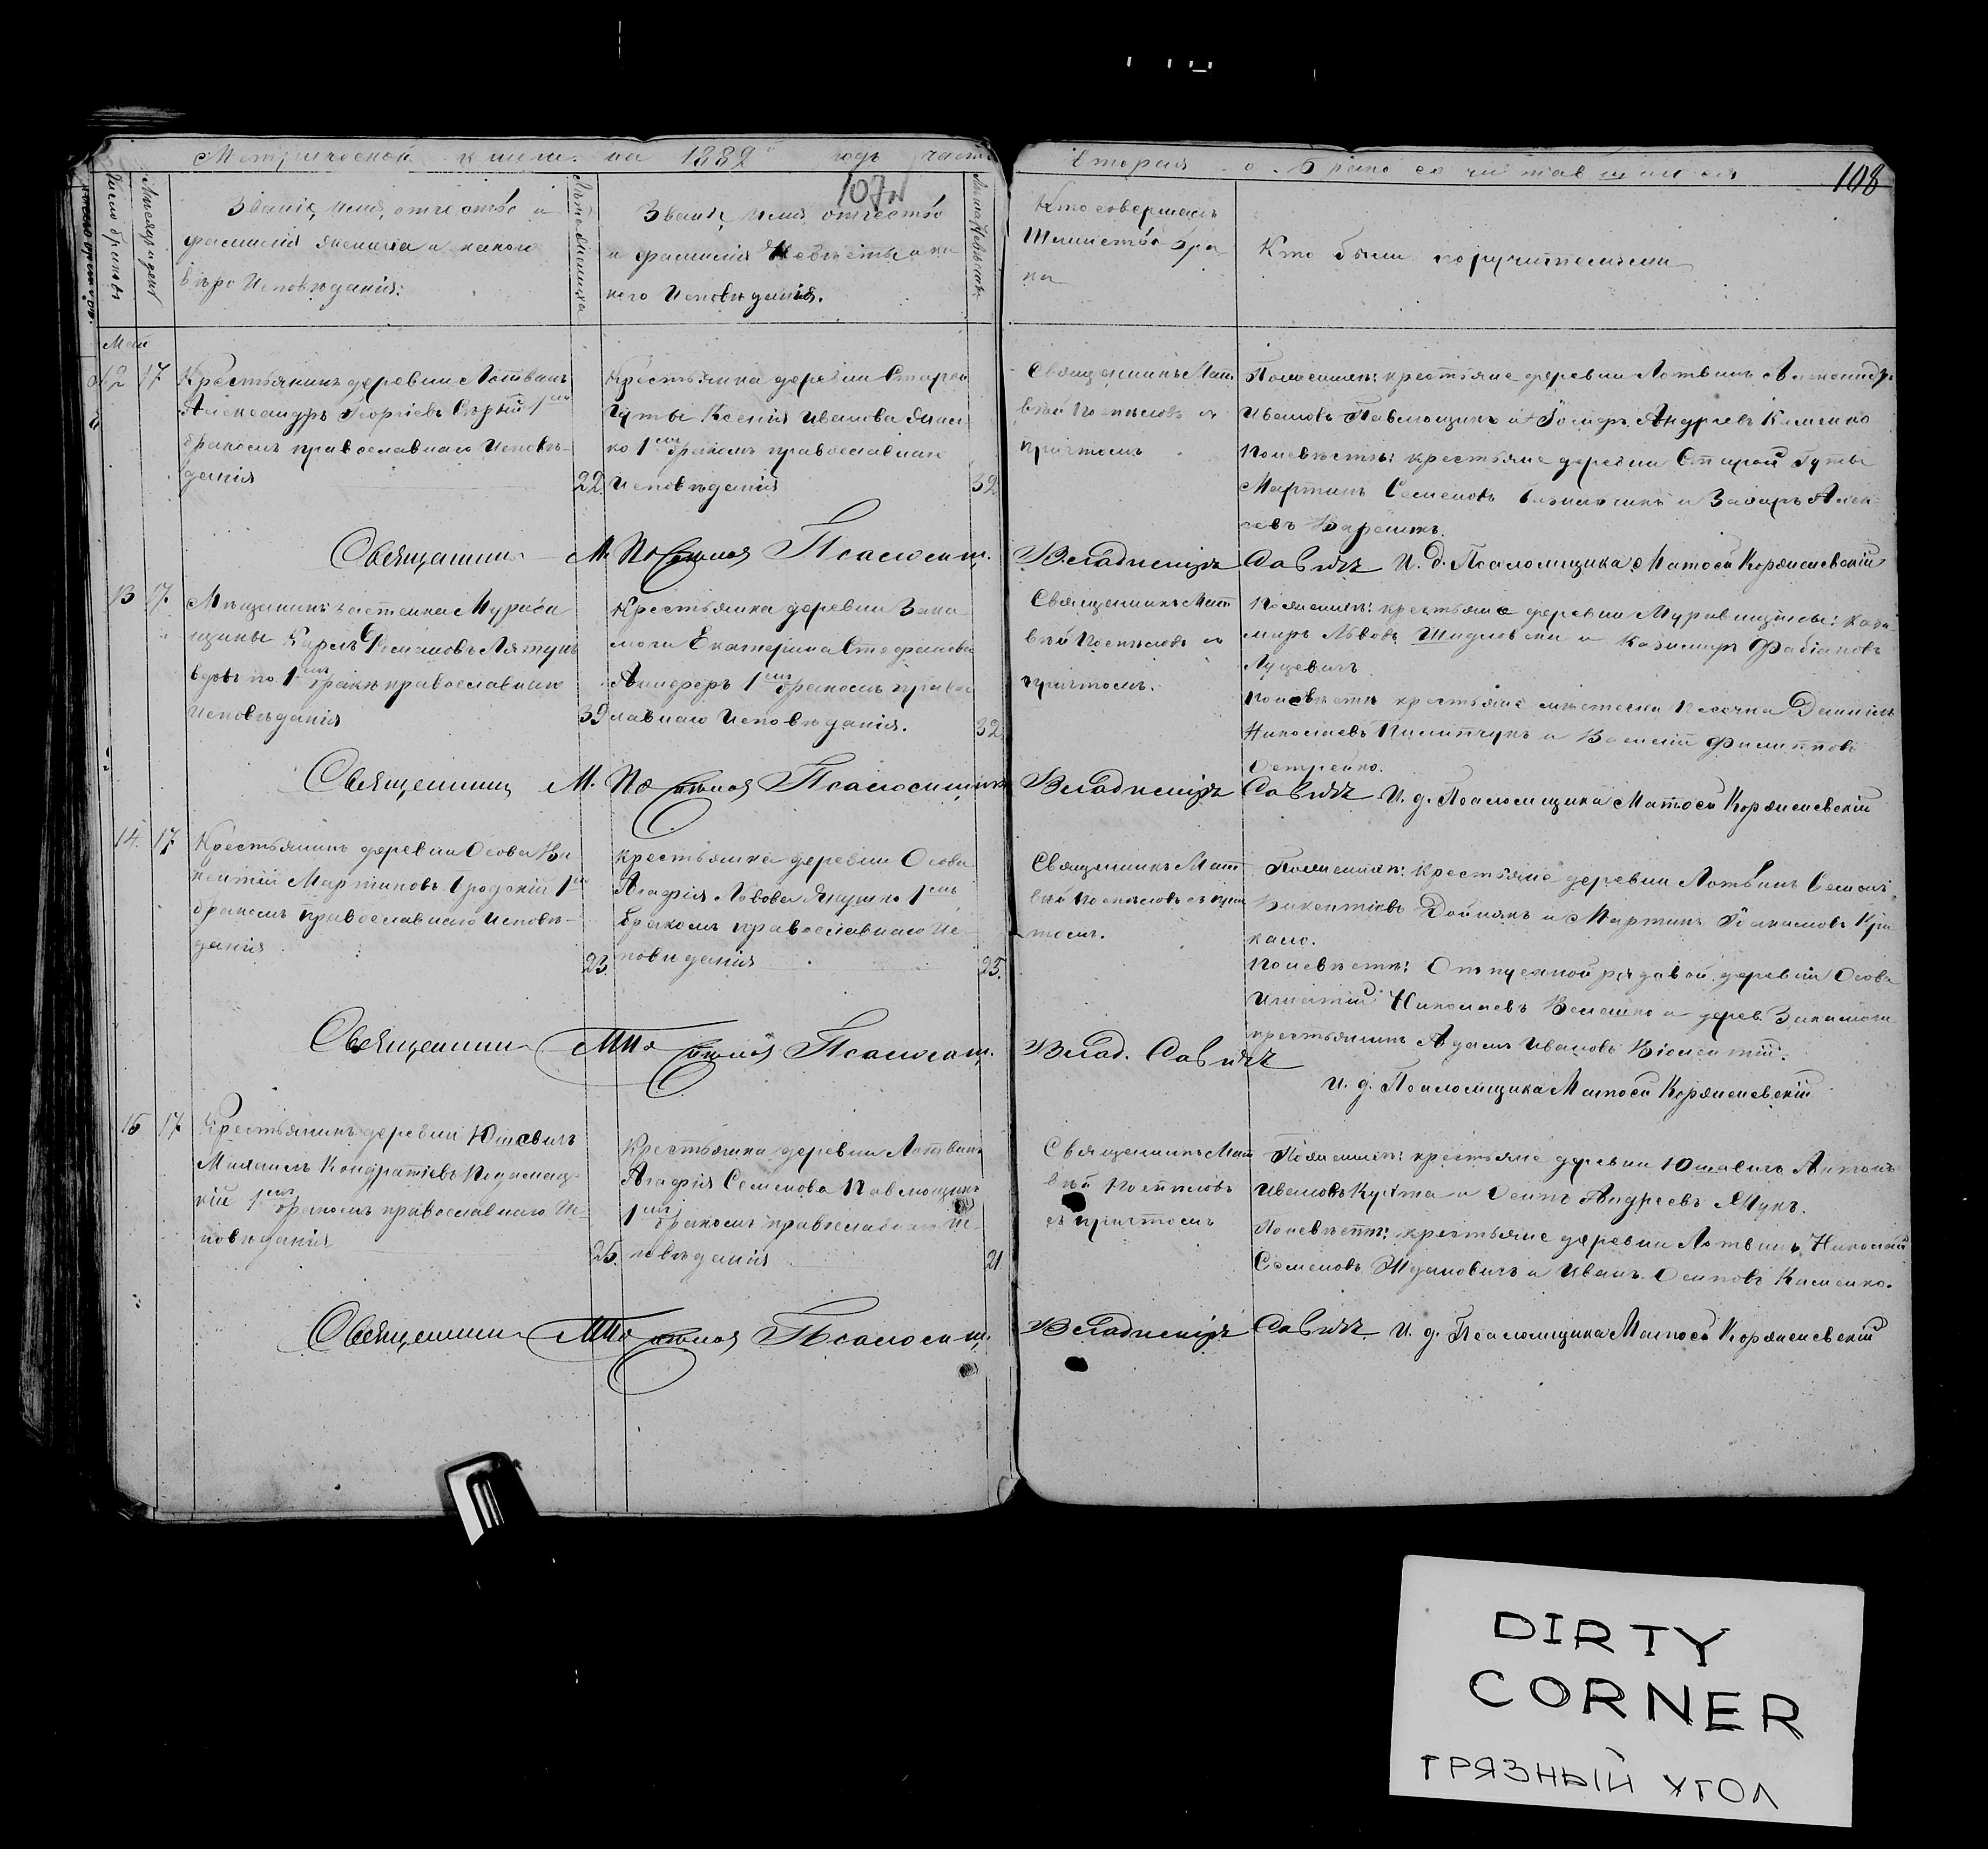 Метрической книги на 1889 годъ часть
вторая о бракосочитавшихся
107
108
Число браковъ
Мѣсяцъ и день
Званіе, имя, отчество и
фамилія жениха и какого
вѣроисповѣданія:
Лѣта жениха
Званіе, имя, отчество
и фамилія невѣсты и ка
кого исповѣданія.
Лѣта невѣсты
Кто совершалъ
таинство бра
ка
Кто были поручителями
Май
12 17
Крестьянинъ деревни Лотвинъ
Александръ Георгіевъ Сѣрый 1мъ
бракомъ православнаго исповѣ-
данія
22.
Крестьянка деревни Старой
Гуты Ксенія Иванова
1мъ бракомъ православнаго
исповѣданія
32
Священникъ Мат
вѣй съ
причтомъ
По женихѣ: крестьяне деревни Лотвинъ Александръ
Ивановъ Павлющикъ и Андреевъ Клименко
По невѣстѣ: крестьяне деревни Старой Гуты
Мартинъ Семеновъ и Захаръ Алек-
Священникъ М. Псаломщ.
Владимиръ Савичъ И. д. Псаломщика Матѳей Корженевскій
13 17
Мѣщанинъ застенка Мурава
щины Карлъ Романовъ Лятунъ
вдовъ по 1мъ бракѣ православнаго
исповѣданія
39
Крестьянка деревни Зака
моги Екатерина Стефанова
1мъ бракомъ право
славнаго исповѣданія.
32
Священникъ Мат
вѣй съ
причтомъ.
По женихѣ: крестьяне деревни Муравищины: Кази-
миръ Львовъ Шидловски и Казимиръ Фабіановъ
Луцевичъ
По невѣстѣ крестьяне мѣстечка Песочна Даніилъ
Николаевъ Пилипчукъ и Василій Филипповъ
Остренко.
Священникъ М. Псаломщикъ
Владимиръ Савичъ И. д. Псаломщика Матѳей Корженевскій
14. 17
Крестьянинъ деревни Осова Ви
кентій Мартиновъ Гродскій 1мъ
бракомъ православнаго исповѣ-
данія
23.
Крестьянка деревни Осова
Агафія Львова Янушко 1мъ
бракомъ православнаго ис-
повѣданія
25.
Священникъ Мат
вѣй съ прич
томъ.
По женихѣ: крестьяне деревни Лотвинъ Семенъ
Викентіевъ Дойнякъ и Мартинъ
По невѣстѣ: Отпускной рядовой деревни Осова
Игнатій Николаевъ и дерев. Закамоги
крестьянинъ Адамъ Ивановъ
Священникъ Псаломщ.
Влад. Савичъ
И. д. Псаломщика Матѳей Корженевскій
15 17
Крестьянинъ деревни Юшевичъ
Михаилъ Кондратіевъ
кій 1мъ бракомъ православнаго ис-
повѣданія
25.
Крестьянка деревни Лотвинъ
Агафія Семенова Павлющикъ
1мъ бракомъ православнаго ис-
повѣданія
21
Священникъ Мат
вѣй
съ причтомъ
По женихѣ: крестьяне деревни Юшевичъ Антонъ
Ивановъ Кухта и Осипъ Андреевъ Мукъ.
По невѣстѣ: крестьяне деревни Лотвинъ Николай
Семеновъ Ждановичъ и Иванъ Осиповъ Клименко.
Священникъ Псаломщ.
Владимиръ Савичъ И. д. Псаломщика Матѳей Корженевскій
DIRTY
CORNER
ГРЯЗНЫЙ УГОЛ